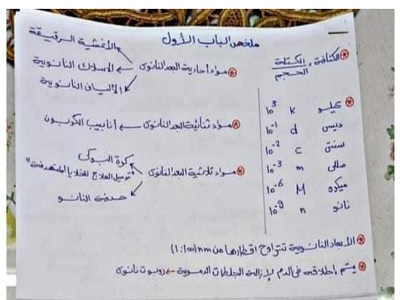 ملخص الباب الأول
الكثافة = الكتلة
الحجم
كيلو k 10³
ديسي d 10⁻¹
سنتي c 10⁻²
مللي m 10⁻³
ميكرو M 10⁻⁶
نانو n 10⁻⁹
الأغشية الرقيقة
مواد أحادية البعد النانوى ← الأسلاك النانوية
الألياف النانوية
مواد ثنائية البعد النانوى ← أنابيب الكربون
كرة البوكى
مواد ثلاثية البعد النانوى "توصيل العلاج للخلايا المستهدفة"
صدفة النانو
الأبعاد النانوية تتراوح اقطارها من (1:100nm)
يتم إطلاقه فى الدم لإزالة الجلطات الدموية ← روبوت نانوى